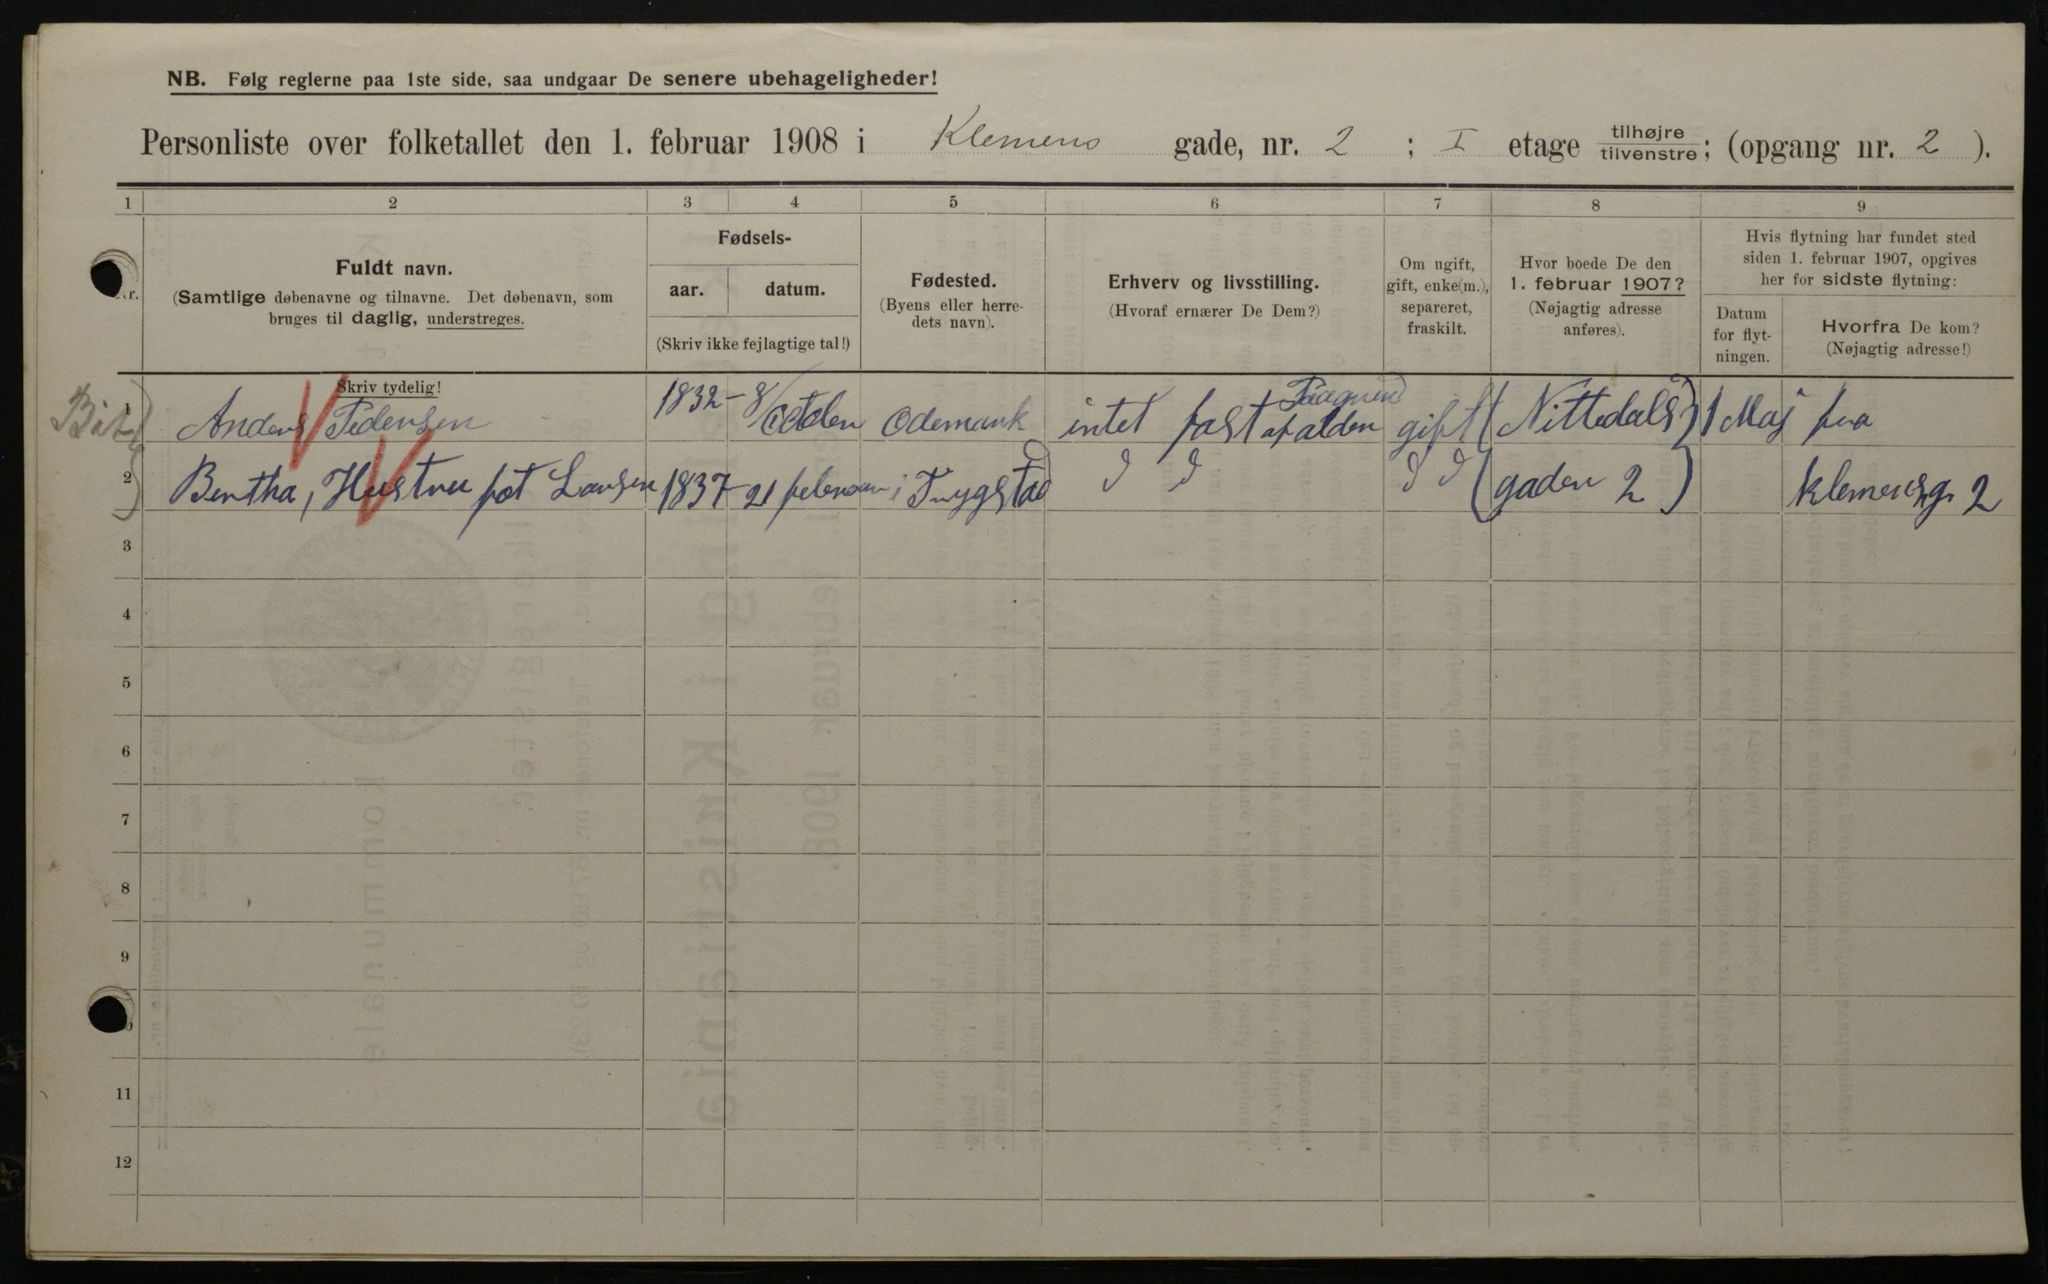 NB. Følg reglerne paa 1ste side, saa undgaar De senere ubehageligheder!
Personliste over folketallet den 1. februar 1908 i Klemens gade, nr. 2 ; I etage tilhøjre/tilvenstre; (opgang nr. 2 ).
1 2 3 4 5 6 7 8 9
Nr.
Fuldt navn.
(Samtlige døbenavne og tilnavne. Det døbenavn, som
bruges til daglig, understreges.
Skriv tydelig!
Fødsels-
aar. datum.
(Skriv ikke fejlagtige tal!)
Fødested.
(Byens eller herre-
dets navn).
Erhverv og livsstilling.
(Hvoraf ernærer De Dem?)
Om ugift,
gift, enke(m.),
separeret,
fraskilt.
Hvor boede De den
1. februar 1907?
(Nøjagtig adresse
anføres).
Hvis flytning har fundet sted
siden 1. februar 1907, opgives
her for sidste flytning:
Datum
for flyt-
ningen.
Hvorfra De kom?
(Nøjagtig adresse!)
1 Anders Pedersen 1832 - 8/ Odemark intet fast af alden gift (Nittedals) 1 Maj fra
2 Bertha, Hustru føt Larsen 1837 - 21 februar i Trygstad (gaden 2) Klemensg. 2
3
4
5
6
7
8
9
11
12